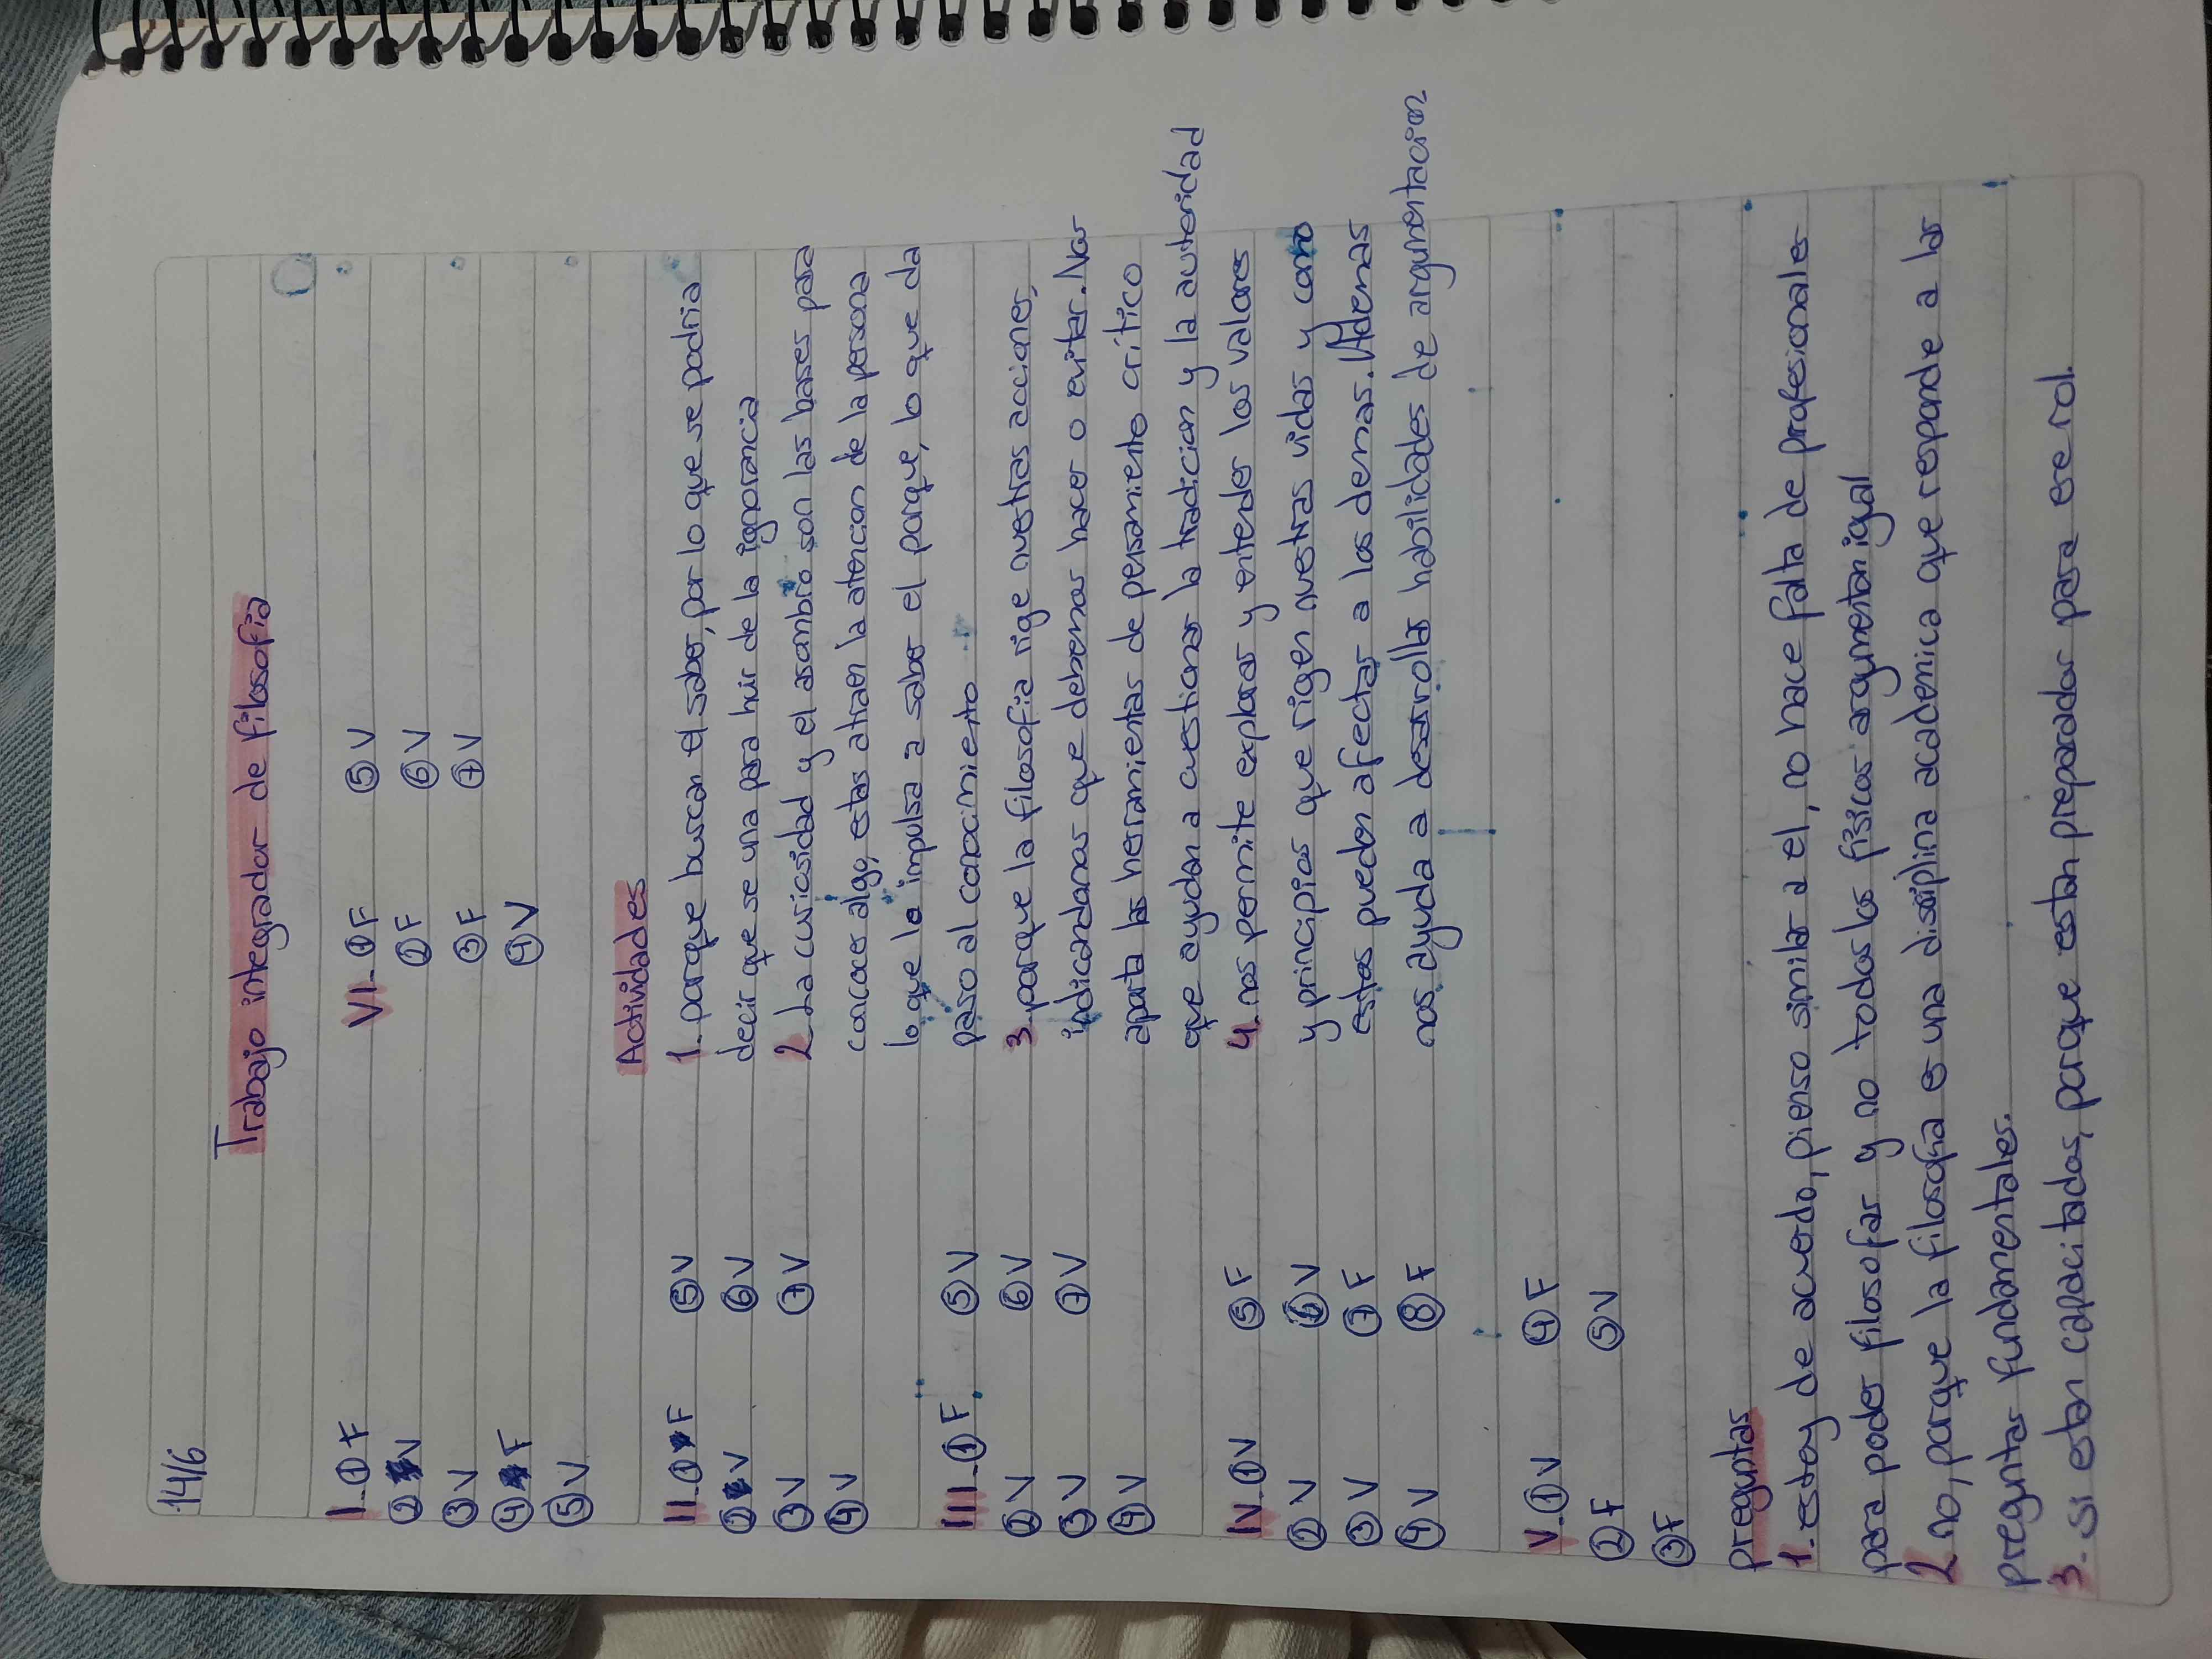 14/6
Trabajo integrador de filosofia
I_ ① F
② V
③ V
④ F
⑤ V
II_ ① F ⑤ V
② V ⑥ V
③ V ⑦ V
④ V
III_ ① F ⑤ V
② V ⑥ V
③ V ⑦ V
④ V
IV_ ① V ⑤ F
② V ⑥ V
③ V ⑦ F
④ V ⑧ F
V_ ① V ④ F
② F ⑤ V
③ F
VI_ ① F ⑤ V
② F ⑥ V
③ F ⑦ V
④ V
Actividades
1_ porque buscan el saber, por lo que se podria
decir que se una para huir de la ignorancia
2_ La curiosidad y el asombro son las bases para
conocer algo, estas atraen la atencion de la persona
lo que la impulsa a saber el porque, lo que da
paso al conocimiento
3_ porque la filosofia rige nuestras acciones,
indicandonos que debemos hacer o evitar. Nos
aporta las herramientas de pensamiento critico
que ayudan a cuestionar la tradicion y la autoridad
4_ nos permite explorar y entender los valores
y principios que rigen nuestras vidas y como
estos pueden afectar a los demas. Ademas
nos ayuda a desarrollar habilidades de argumentacion
preguntas
1_ estoy de acuerdo, pienso similar a el, no hace falta de profesionales
para poder filosofar y no todos los fisicos argumentan igual
2_ no, porque la filosofia es una disiplina academica que responde a las
preguntas fundamentales.
3_ Si estan capacitados, porque estan preparados para ese rol.